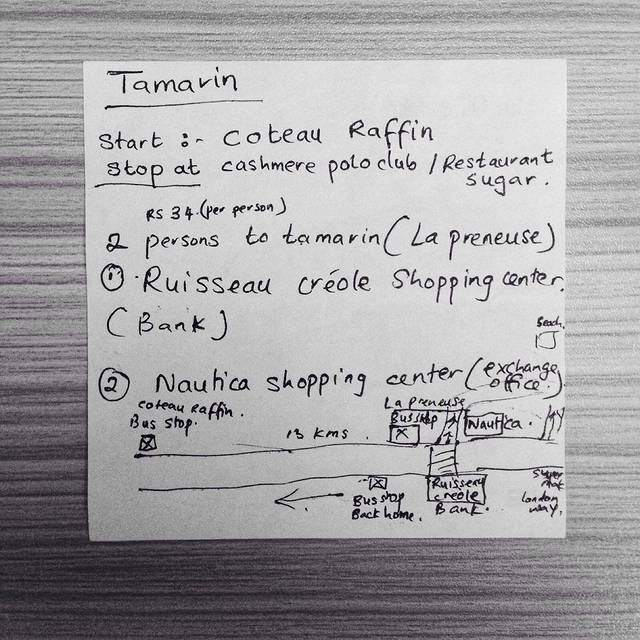 Tamarin
Start :- Coteau Raffin
Stop at cashmere polo club / Restaurant
Sugar.
RS 34. (per person)
2 persons to tamarin (La preneuse)
① Ruisseau créole Shopping center.
(Bank)
Beach.
② Nautica shopping center (exchange
office)
La Preneuse
coteau Raffin.
Bus stop.
13 kms.
Bus stop
Nautica.
Bus stop
Back home.
Ruisseau
creole
Bank.
Super
London
way.